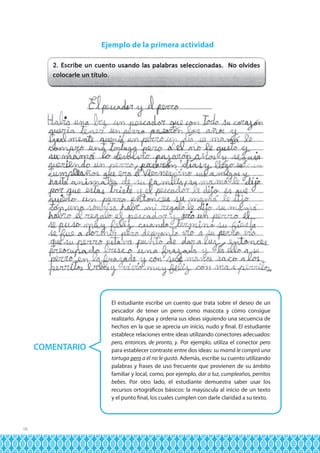 Ejemplo de la primera actividad
2. Escribe un cuento usando las palabras seleccionadas. No olvides
colocarle un título.
El pescador y el perro
Había una bez un pescador que con todo su corazón
quería tener un perro pasaron los años y
igual mente quería un perro un día su mamá le
compro una tortuga pero a él no le gusto y
su mamá la
queriendo un perro, pasaron días y llego su
cumpleaños que era el viernes
hasta animales de su familia, su mamá le dijo
por que estas triste el pescador le dijo es que
quiero un perro entonces su mamá le dijo
con una sonrisa habre mi regalo le dijo su
habrio el regalo el pescador y era un perro él
se puso muy feliz cuando termino su fiesta
se fue a dormir pero
que su perro estaba punto de dar a luz, entonces
preocupado fresco una frazada y
perro en la frazada y con sus manos saco a los
perritos bebes y vivio muy feliz con sus perritos
El estudiante escribe un cuento que trata sobre el deseo de un
pescador de tener un perro como mascota y cómo consigue
realizarlo. Agrupa y ordena sus ideas siguiendo una secuencia de
hechos en la que se aprecia un inicio, nudo y final. El estudiante
establece relaciones entre ideas utilizando conectores adecuados:
pero, entonces, de pronto, y. Por ejemplo, utiliza el conector pero
para establecer contraste entre dos ideas: su mamá le compró una
tortuga pero a él no le gustó. Además, escribe su cuento utilizando
palabras y frases de uso frecuente que provienen de su ámbito
familiar y local, como, por ejemplo, dar a luz, cumpleaños, perritos
bebes. Por otro lado, el estudiante demuestra saber usar los
recursos ortográficos básicos: la mayúscula al inicio de un texto
y el punto final, los cuales cumplen con darle claridad a su texto.
COMENTARIO